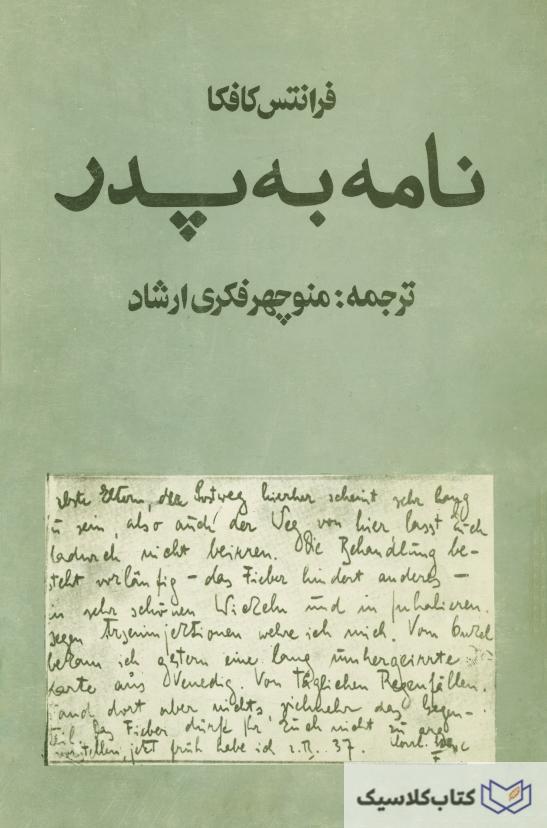 فرانتس کافکا
نامه به پدر
ترجمه: منوچهر فکری ارشاد
Eltern, der Postweg hierher scheint sehr lang
zu sein, also auch der Weg von hier lasst Euch
dadurch nicht beirren. Die Behandlung be-
steht vorläufig - das Fieber hindert anderes -
in sehr schönen Wickeln und in Inhalieren.
gegen Arseninjektionen wehre ich mich. Vom Onkel
bekam ich gestern eine lang umhergeirrte
Karte aus Venedig. Von täglichen Regenfällen
dort aber nichts, vielmehr das Gegen-
teil. Das Fieber dürft Ihr Euch nicht zu arg
vorstellen, jetzt früh habe ich z. B. 37.
کتاب کلاسیک